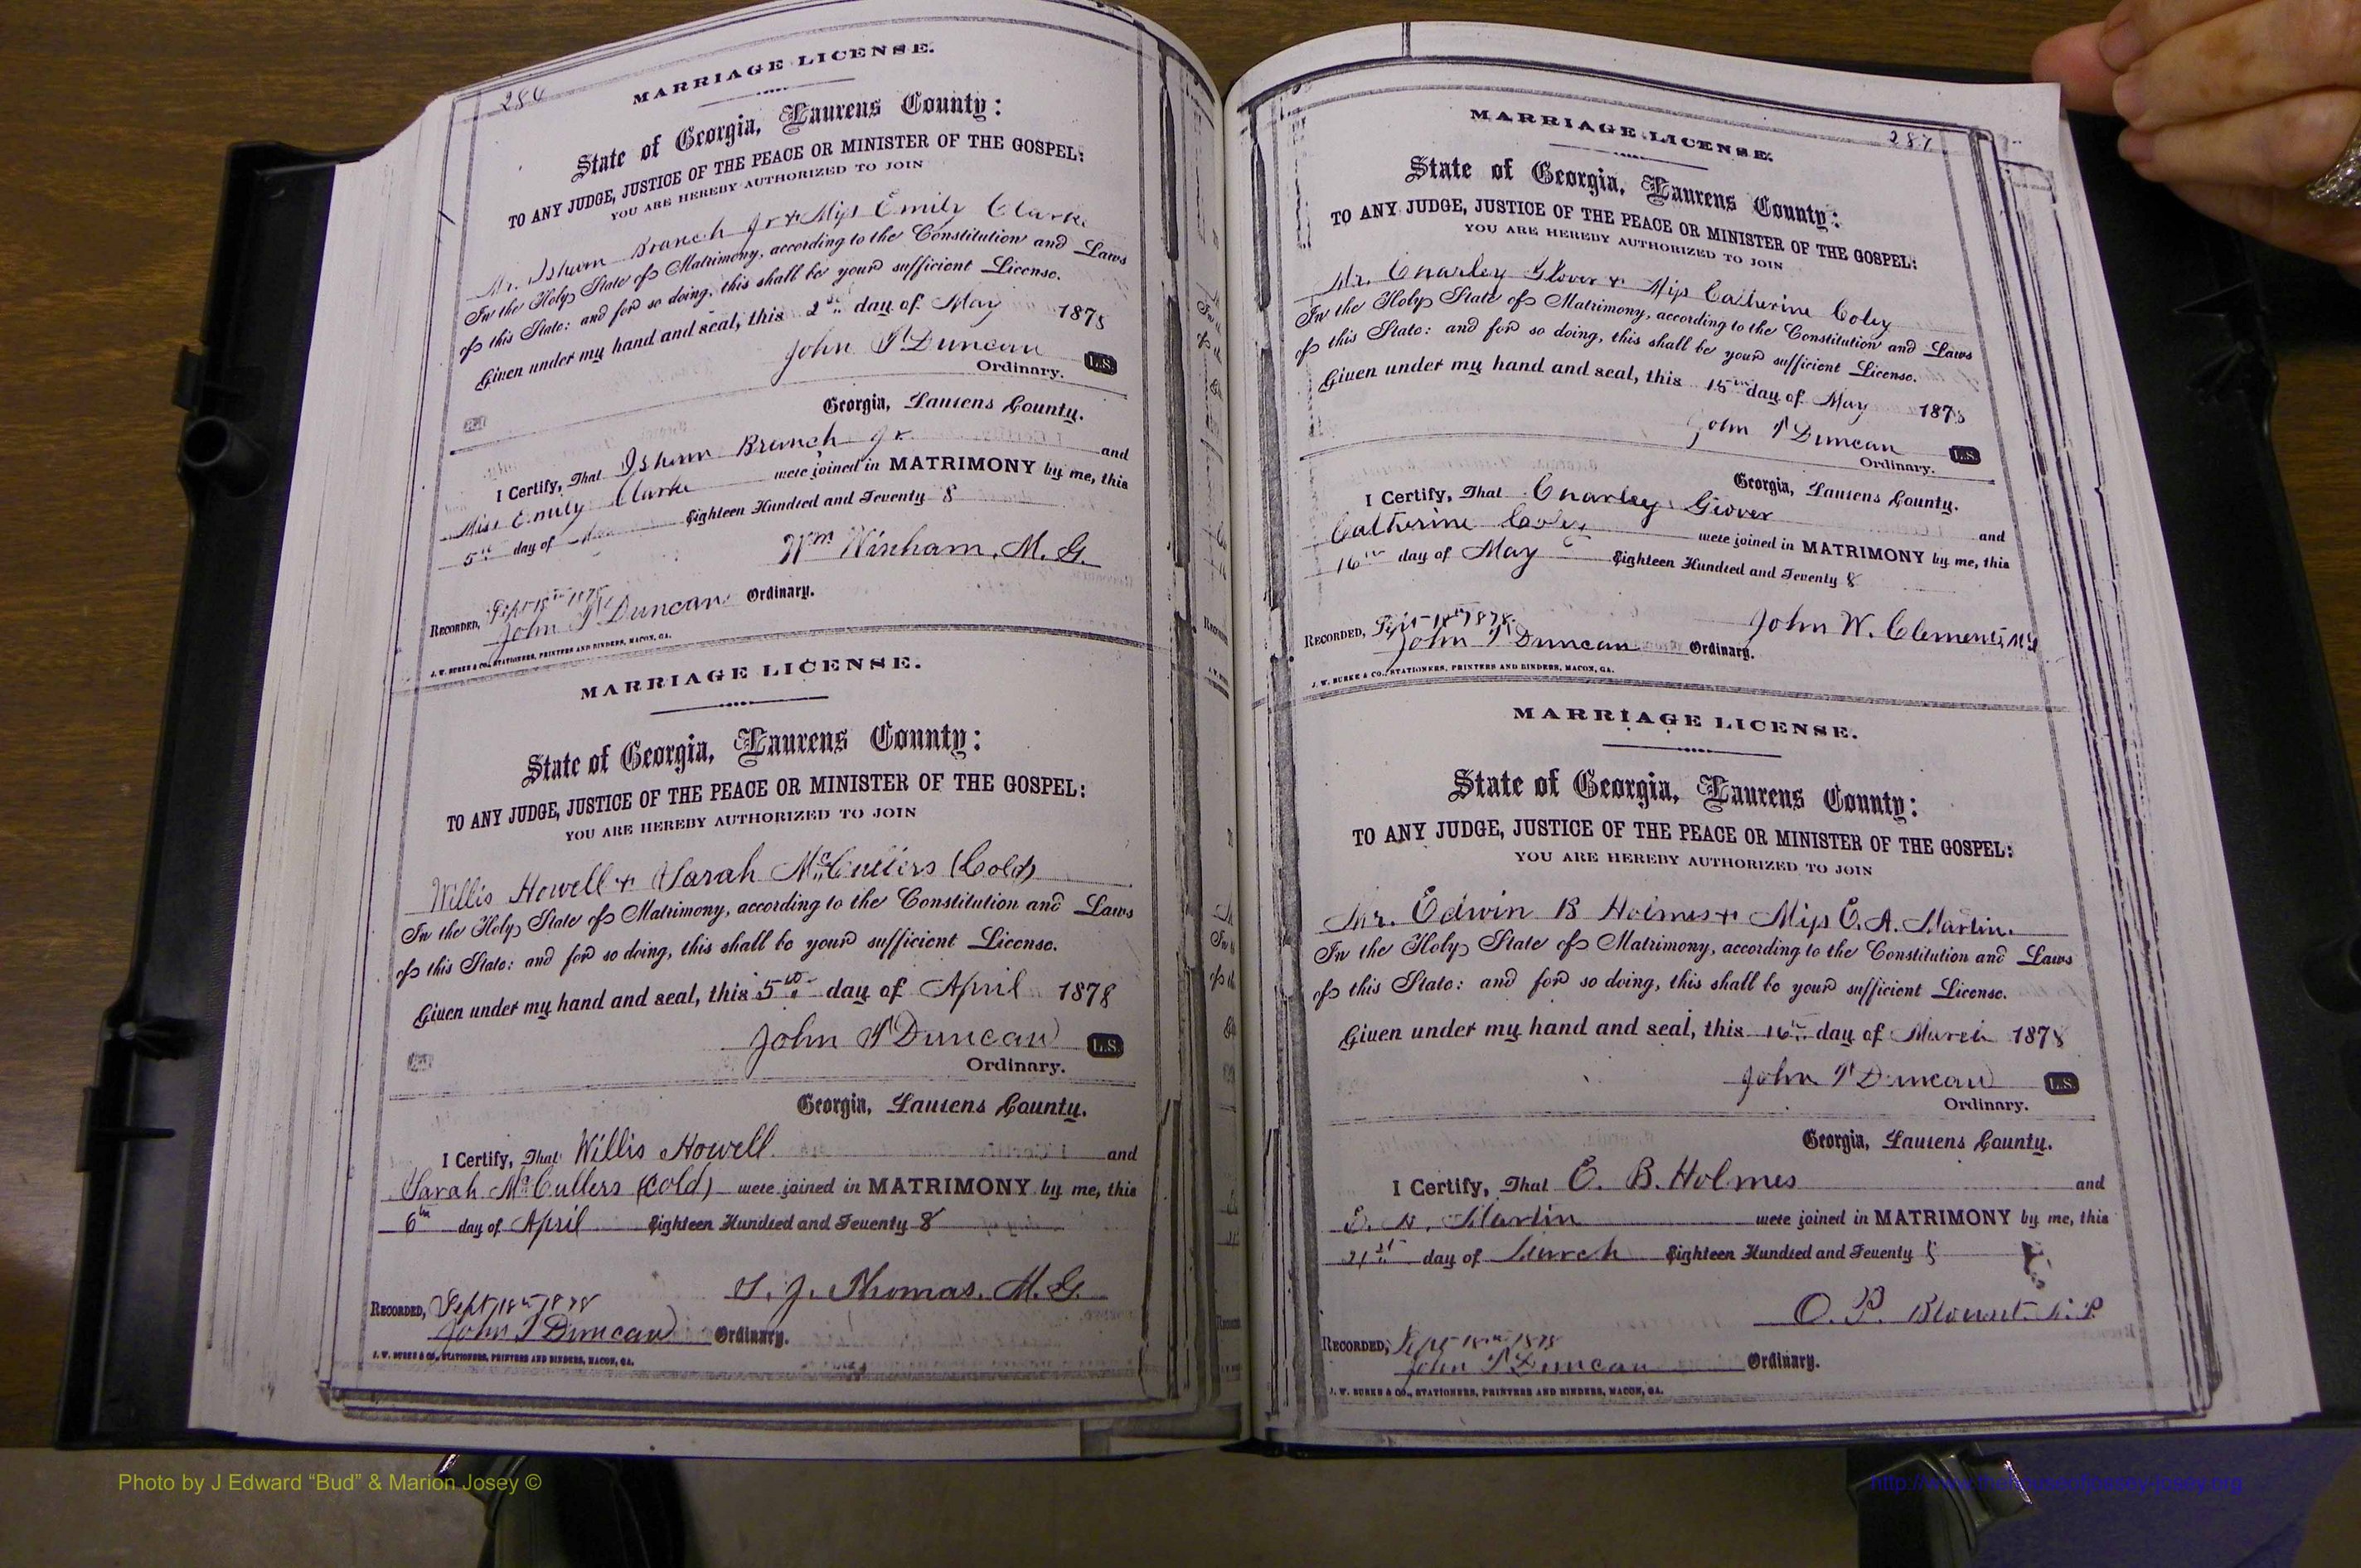 MARRIAGE LICENSE.
State of Georgia, Laurens County:
TO ANY JUDGE, JUSTICE OF THE PEACE OR MINISTER OF THE GOSPEL:
YOU ARE HEREBY AUTHORIZED TO JOIN
Mr. Isham Branch Jr & Miss Emily Clarke
In the Holy State of Matrimony, according to the Constitution and Laws
of this State: and for so doing, this shall be your sufficient License.
Given under my hand and seal, this 2nd day of May 1878
John T Duncan L.S.
Ordinary.
Georgia, Laurens County.
I Certify, That Isham Branch Jr. and
Miss Emily Clarke were joined in MATRIMONY by me, this
5th day of May Eighteen Hundred and Seventy 8
Wm Winham, M.G.
RECORDED, Sept 18th 1878
John T Duncan Ordinary.
J. W. BURKE & CO., STATIONERS, PRINTERS AND BINDERS, MACON, GA.
MARRIAGE LICENSE.
State of Georgia, Laurens County:
TO ANY JUDGE, JUSTICE OF THE PEACE OR MINISTER OF THE GOSPEL:
YOU ARE HEREBY AUTHORIZED TO JOIN
Willis Howell & Sarah McCullers (Cold)
In the Holy State of Matrimony, according to the Constitution and Laws
of this State: and for so doing, this shall be your sufficient License.
Given under my hand and seal, this 5th day of April 1878
John T Duncan L.S.
Ordinary.
Georgia, Laurens County.
I Certify, That Willis Howell and
Sarah McCullers (Cold) were joined in MATRIMONY by me, this
6th day of April Eighteen Hundred and Seventy 8
S. J. Thomas. M.G.
RECORDED, Sept 18th 1878
John T Duncan Ordinary.
J. W. BURKE & CO., STATIONERS, PRINTERS AND BINDERS, MACON, GA.
287
MARRIAGE LICENSE.
State of Georgia, Laurens County:
TO ANY JUDGE, JUSTICE OF THE PEACE OR MINISTER OF THE GOSPEL:
YOU ARE HEREBY AUTHORIZED TO JOIN
Mr. Charley Glover & Miss Catherine Coley
In the Holy State of Matrimony, according to the Constitution and Laws
of this State: and for so doing, this shall be your sufficient License.
Given under my hand and seal, this 15th day of May 1878
John T Duncan L.S.
Ordinary.
Georgia, Laurens County.
I Certify, That Charley Glover and
Catherine Coley were joined in MATRIMONY by me, this
16th day of May Eighteen Hundred and Seventy 8
John W. Clements, MG
RECORDED, Sept 18th 1878.
John T Duncan Ordinary.
J. W. BURKE & CO., STATIONERS, PRINTERS AND BINDERS, MACON, GA.
MARRIAGE LICENSE.
State of Georgia, Laurens County:
TO ANY JUDGE, JUSTICE OF THE PEACE OR MINISTER OF THE GOSPEL:
YOU ARE HEREBY AUTHORIZED TO JOIN
Mr. Edwin B Holmes & Miss E. A. Martin.
In the Holy State of Matrimony, according to the Constitution and Laws
of this State: and for so doing, this shall be your sufficient License.
Given under my hand and seal, this 16th day of March 1878
John T Duncan L.S.
Ordinary.
Georgia, Laurens County.
I Certify, That E. B. Holmes and
E. A. Martin were joined in MATRIMONY by me, this
21st day of March Eighteen Hundred and Seventy 8
O. P. Blount.
RECORDED, Sept 18th 1878
John T Duncan Ordinary.
J. W. BURKE & CO., STATIONERS, PRINTERS AND BINDERS, MACON, GA.
Photo by J Edward “Bud” & Marion Josey ©